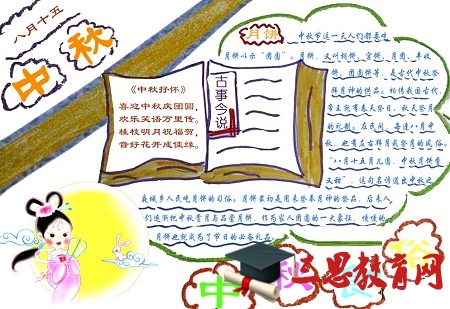 八月十五
中秋
《中秋抒怀》
喜迎中秋庆团圆,
欢乐笑语万里传。
桂枝明月祝福贺,
音好花开成佳缘。
古事今说
月饼
中秋节这一天人们都要吃
月饼以示“团圆”。月饼,又叫胡饼、宫饼、月团、丰收
饼、团圆饼等,是古代中秋祭
拜月神的供品。相传我国古代,
帝王就有春天祭日、秋天祭月
的礼制。在民间,每逢八月中
秋,也有左右拜月或祭月的风俗。
“八月十五月儿圆,中秋月饼香
又甜”,这句名谚道出中秋之
夜城乡人民吃月饼的习俗。月饼最初是用来祭奉月神的祭品,后来人
们逐渐把中秋赏月与品尝月饼,作为家人团圆的一大象征,慢慢的
月饼也就成为了节日的必备礼品。
中秋
俗
三思教育网